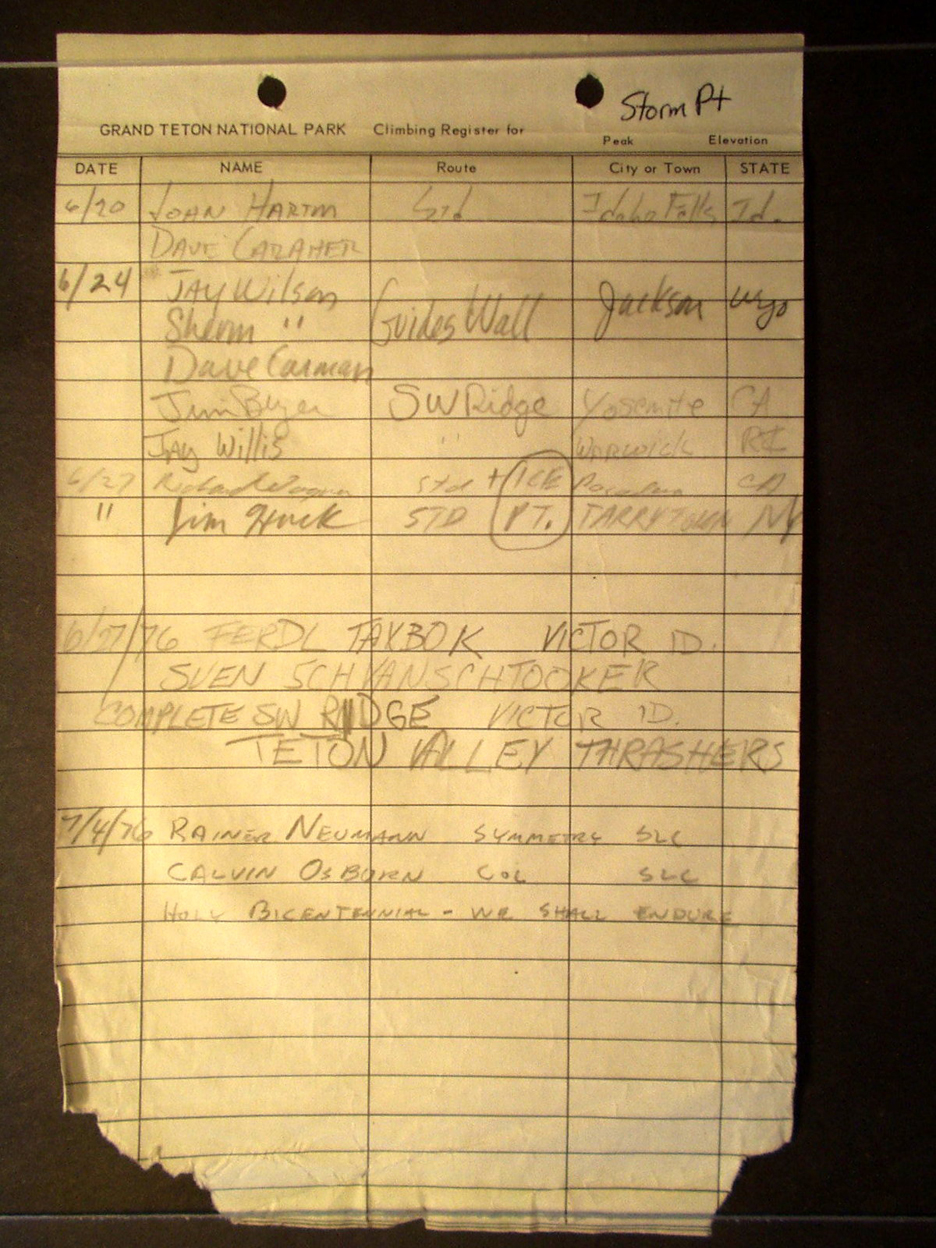 Storm Pt
GRAND TETON NATIONAL PARK Climbing Register for
Peak Elevation
DATE NAME Route City or Town STATE
6/20 JOHN Std Idaho Falls Id.
DAVE CARAHER
6/24 JAY Wilson Jackson Wyo
Sherm " Guides Wall
Dave Carman
Jim Beyer SW Ridge Yosemite CA
JAY Willis " WARWICK RI
6/27 Richard Std + ICE Pasadena CA
" Jim STD PT. TARRYTOWN NY
6/27/76 FERDL TAXBOK VICTOR ID.
SVEN SCHVANSCHTOOKER
COMPLETE SW RIDGE VICTOR ID.
TETON VALLEY THRASHERS
7/4/76 RAINER NEUMANN SYMMETRY SLC
CALVIN OSBURN COL SLC
HOLY BICENTENNIAL - WE SHALL ENDURE